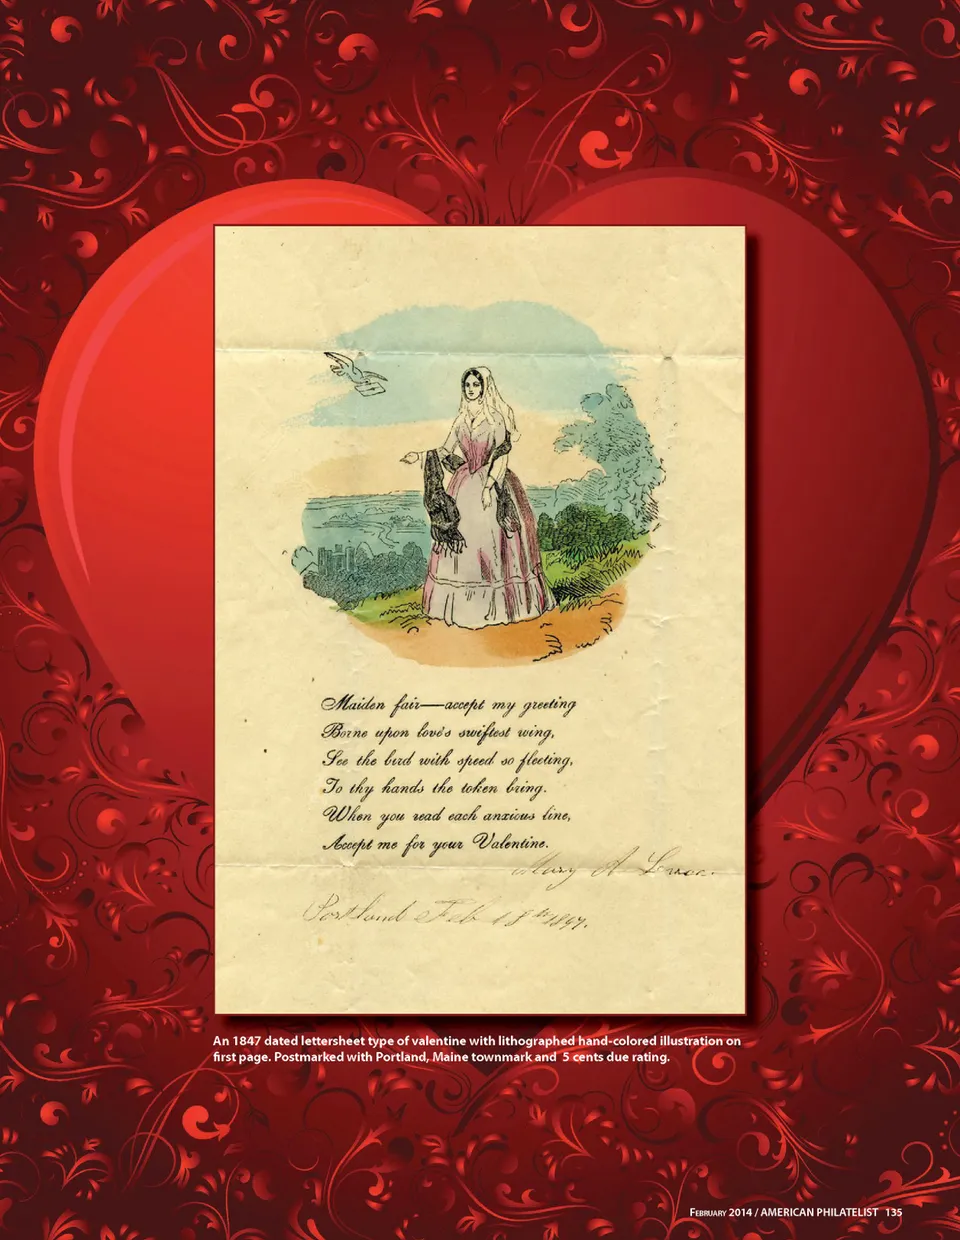 Maiden fair—accept my greeting
Borne upon love's swiftest wing,
See the bird with speed so fleeting,
To thy hands the token bring.
When you read each anxious line,
Accept me for your Valentine.
Mary A
Portland Feb 18th 1847.
An 1847 dated lettersheet type of valentine with lithographed hand-colored illustration on
first page. Postmarked with Portland, Maine townmark and 5 cents due rating.
February 2014 / AMERICAN PHILATELIST 135